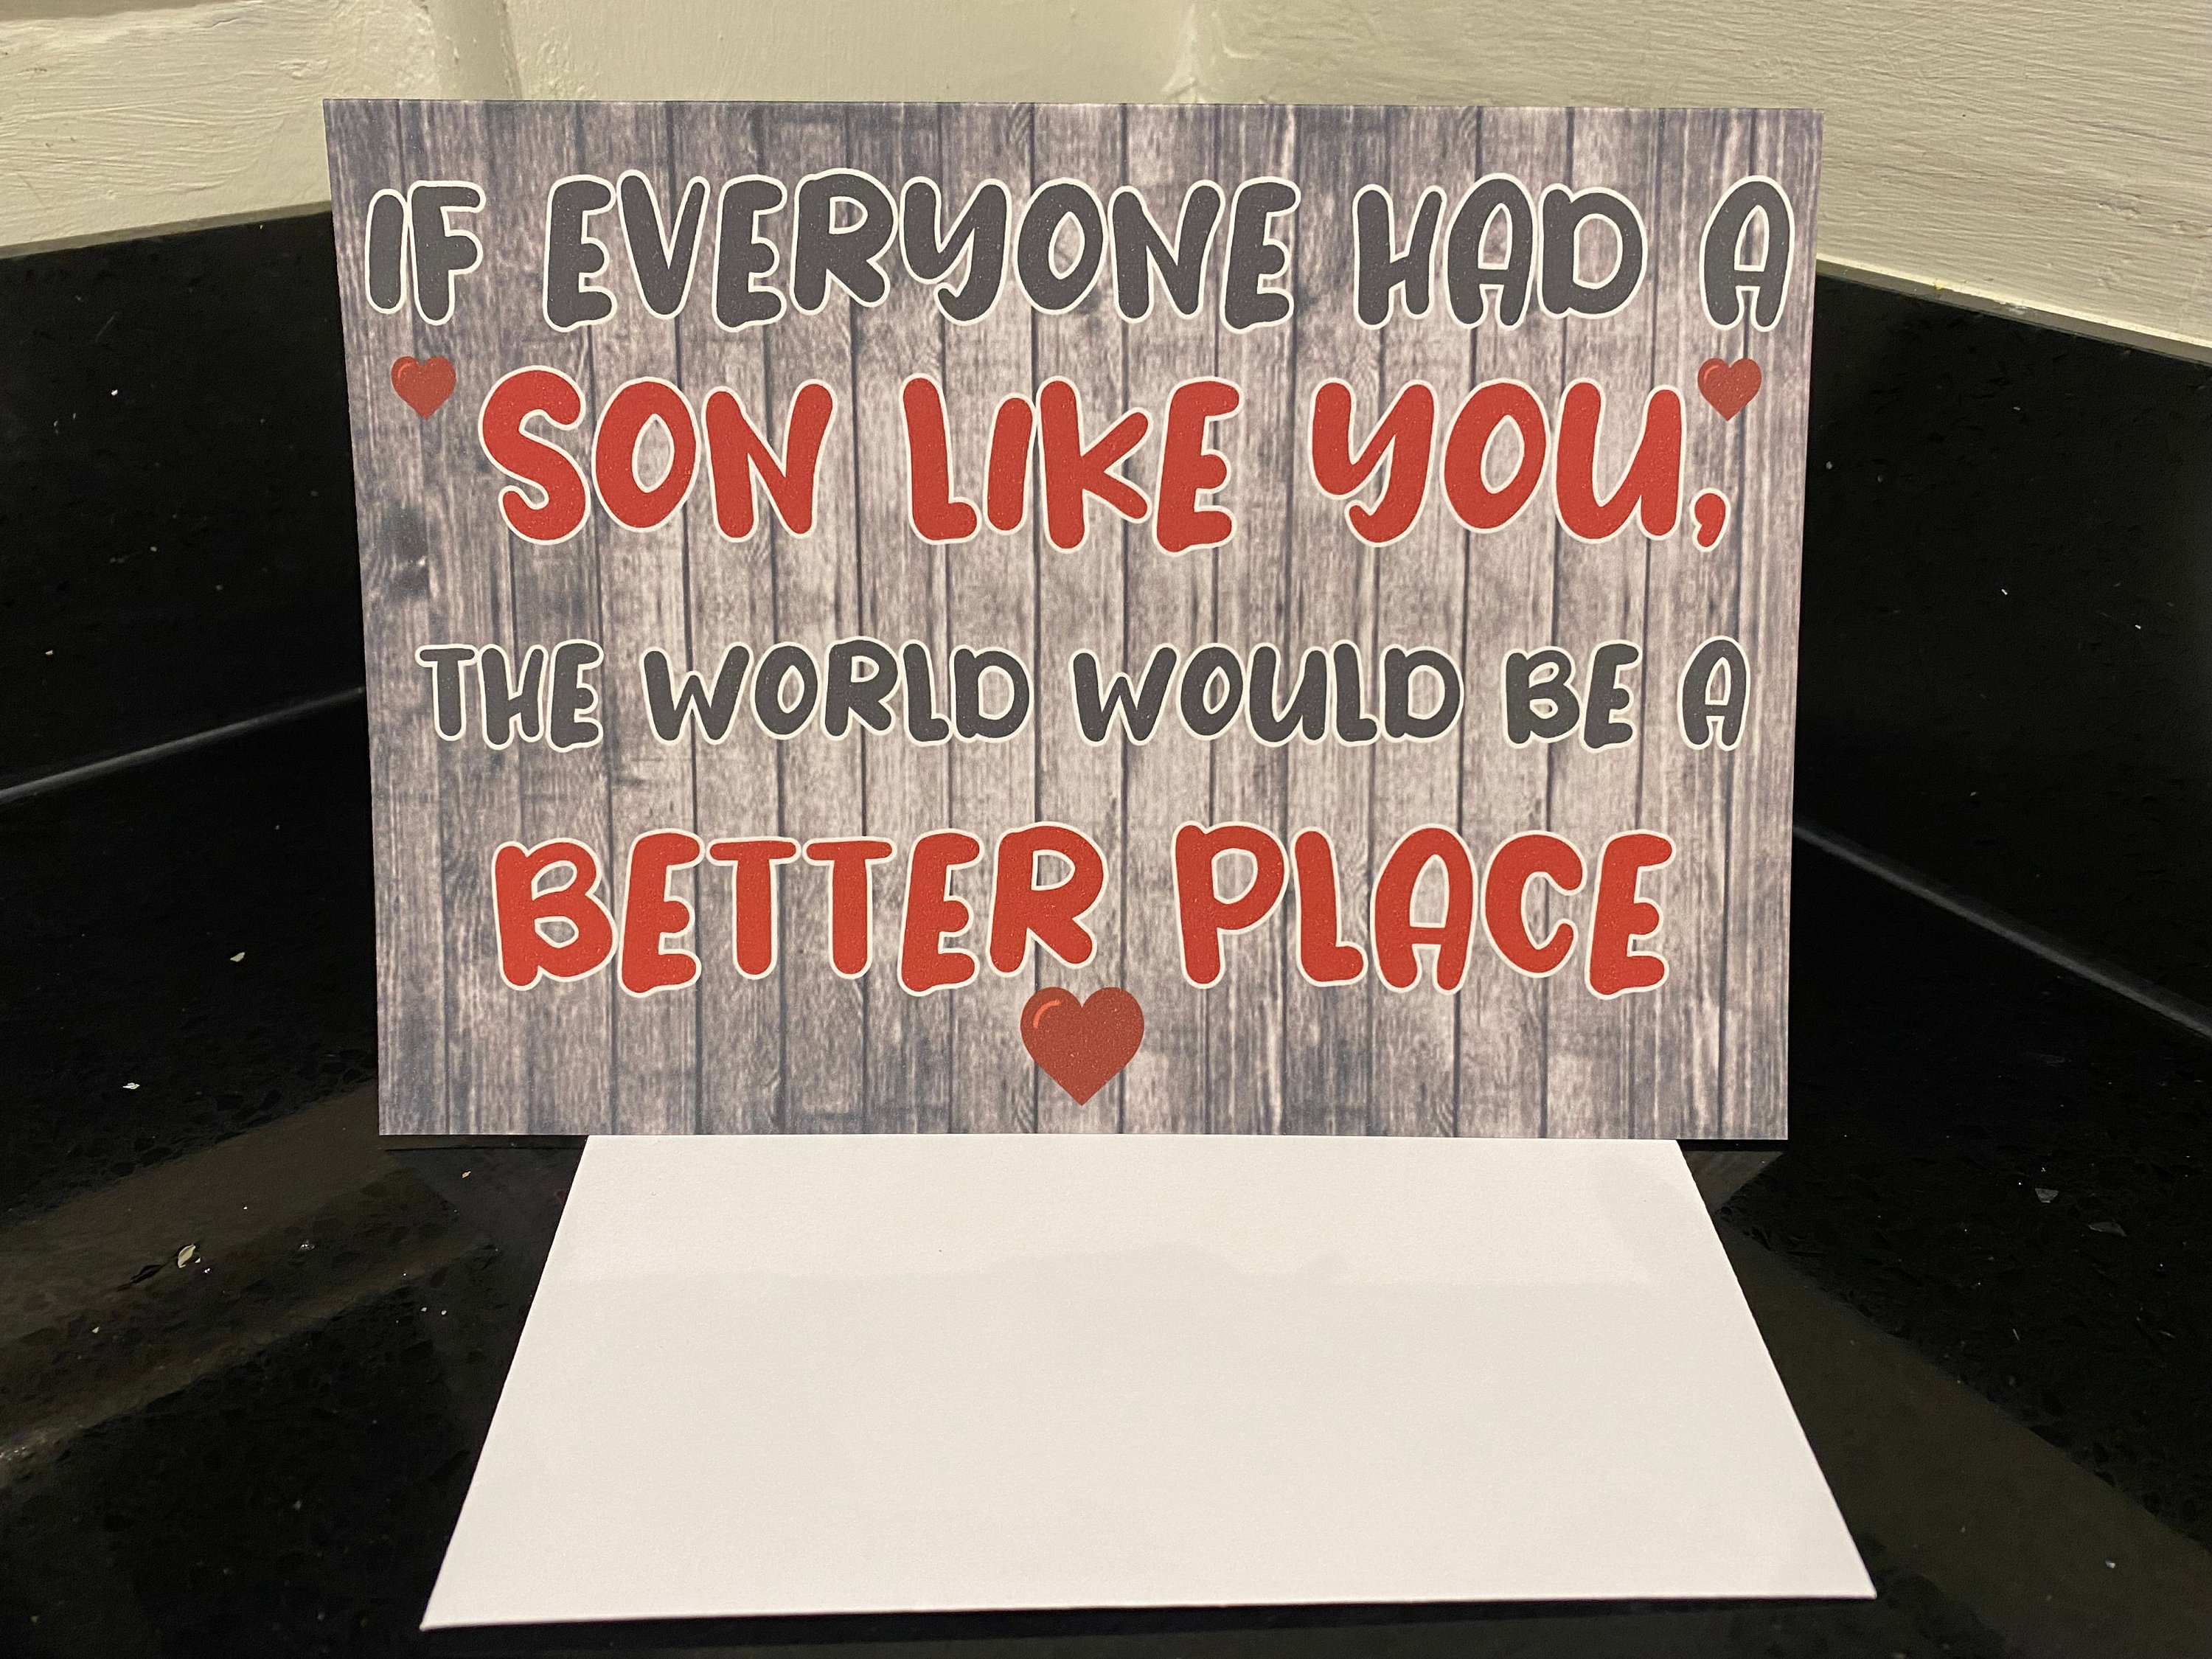 IF EVERYONE HAD A
SON LIKE YOU,
THE WORLD WOULD BE A
BETTER PLACE